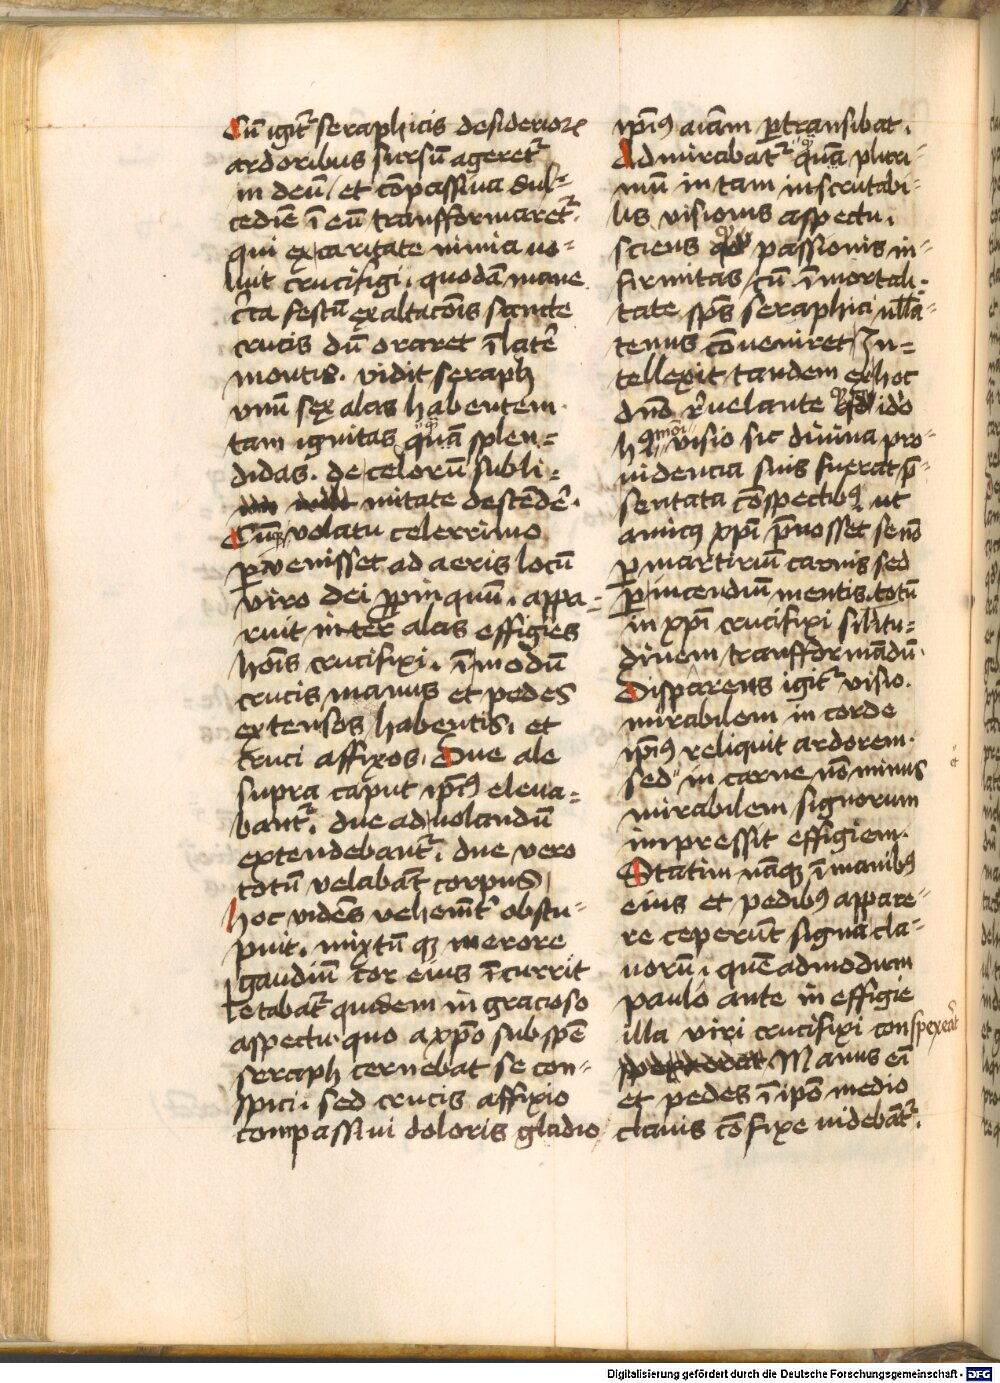 Cū igit᷑ seraphicis desideriorꝝ
ardoribus sursū ageret᷑
in deū / et cōpassiua dul=
cedīe ī eū transfformaret᷑.
qui ex caritate nimia uo=
luit crucifigi. quodā mane
c̄ca festū exaltacōīs sancte
crucis dū oraret ī late᷑
montis. vidit seraph
vnū sex alas habentem.
tam ignitas quā splen=
didas. de celorū subli=
mitate descēde᷑.
Cūqꝫ volatu celerrimo
ꝑuenisset ad aeris locū
viro dei ꝓpinquū. appa=
ruit inter alas effigies
hoīs crucifixi. ī modū
crucis manus et pedes
extensos habentis. et
cruci affixos. Due ale
supra caput ip̄iꝰ eleua=
bant᷑. due ad uolandū
extendebant᷑. due vero
totū velabāt corpus
hoc vidēs vehemēt᷑ obstu=
puit. mixtū qꝫ merore
gaudiū cor eius īcurrit
letabat᷑ quidem in gracioso
aspectu quo a xp̄o sub spē
seraph cernebat se con=
spici. sed crucis affixio
compassiui doloris gladio
ip̄iꝰ aīam ꝑtransibat.
Admirabat᷑ quā pluri=
mū in tam inscrutabi=
lis visionis aspectu.
sciens passionis in=
firmitas / cū īmortali=
tate sp̄s seraphici nllā=
tenus cōueniret In=
tellexit tandem ex hoc
dn̄o r᷑uelante idō
visio sic diuina pro=
uidencia suis fuerat p̄=
sentata cōspectibꝰ ut
amicꝰ xp̄i p̄nosset se nō
ꝑ martiriū carnis sed
ꝑ incendiū mentis. totū
in xp̄i crucifixi silitu=
dinem transfformādū.
Disparens igit᷑ visio.
mirabilem in corde
ip̄iꝰ reliquit ardorem.
sed in carne nō minus
mirabilem signorum
impressit effigiem.
Statim nāqꝫ ī manibꝰ
eius et pedibꝰ appare=
re ceperūt signa cla=
uorū. quēadmodum
paulo ante in effigie
illa viri crucifixi conspexerat
Manus eī
et pedes ī ip̄o medio
clauis cōfixe uidebāt᷑.
Digitalisierung gefördert durch die Deutsche Forschungsgemeinschaft - DFG